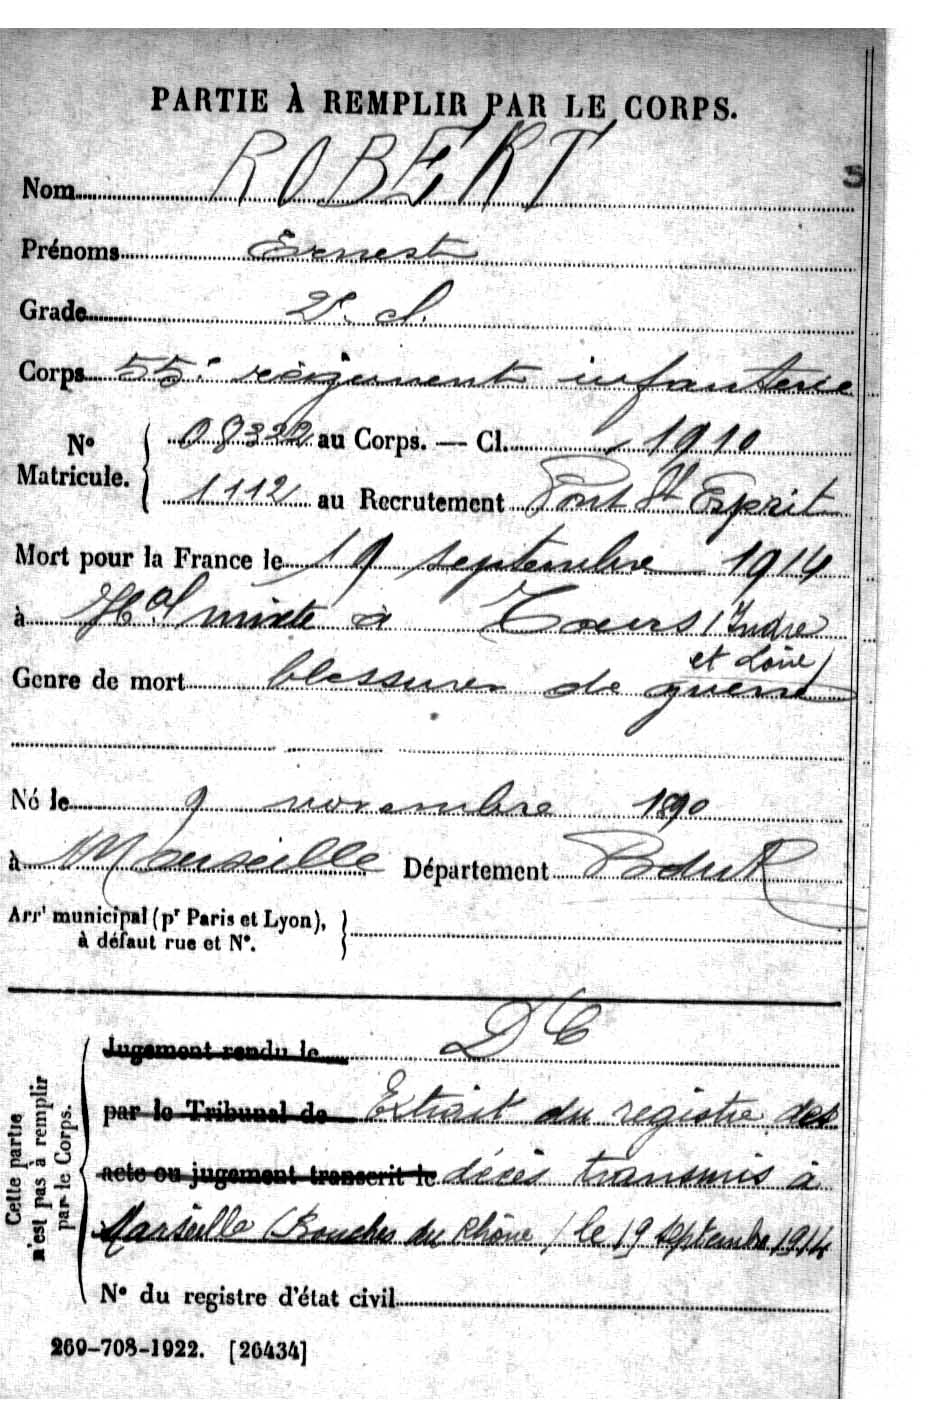 PARTIE À REMPLIR PAR LE CORPS.
S
Nom ROBERT
Prénoms Ernest
Grade 2e cl.
Corps 55e régiment infanterie
N° Matricule. 08322 au Corps. — Cl. 1910
1112 au Recrutement Pont St Esprit
Mort pour la France le 19 septembre 1914
à Hal mixte à Tours (Indre
et Loire)
Genre de mort blessures de guerre
Né le 9 novembre 1890
à Marseille Département B du R
Arrt municipal (pr Paris et Lyon),
à défaut rue et N°.
Cette partie
n'est pas à remplir
par le Corps.
Jugement rendu le DC
par le Tribunal de Extrait du registre des
acte ou jugement transcrit le décès transmis à
Marseille (Bouches du Rhône) le 19 septembre 1914
N° du registre d'état civil
269-708-1922. [26434]